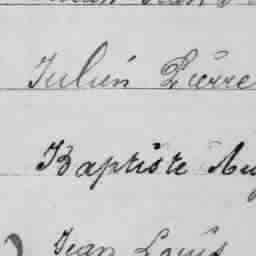 Julien Pierre
Baptiste Au
Jean Louis